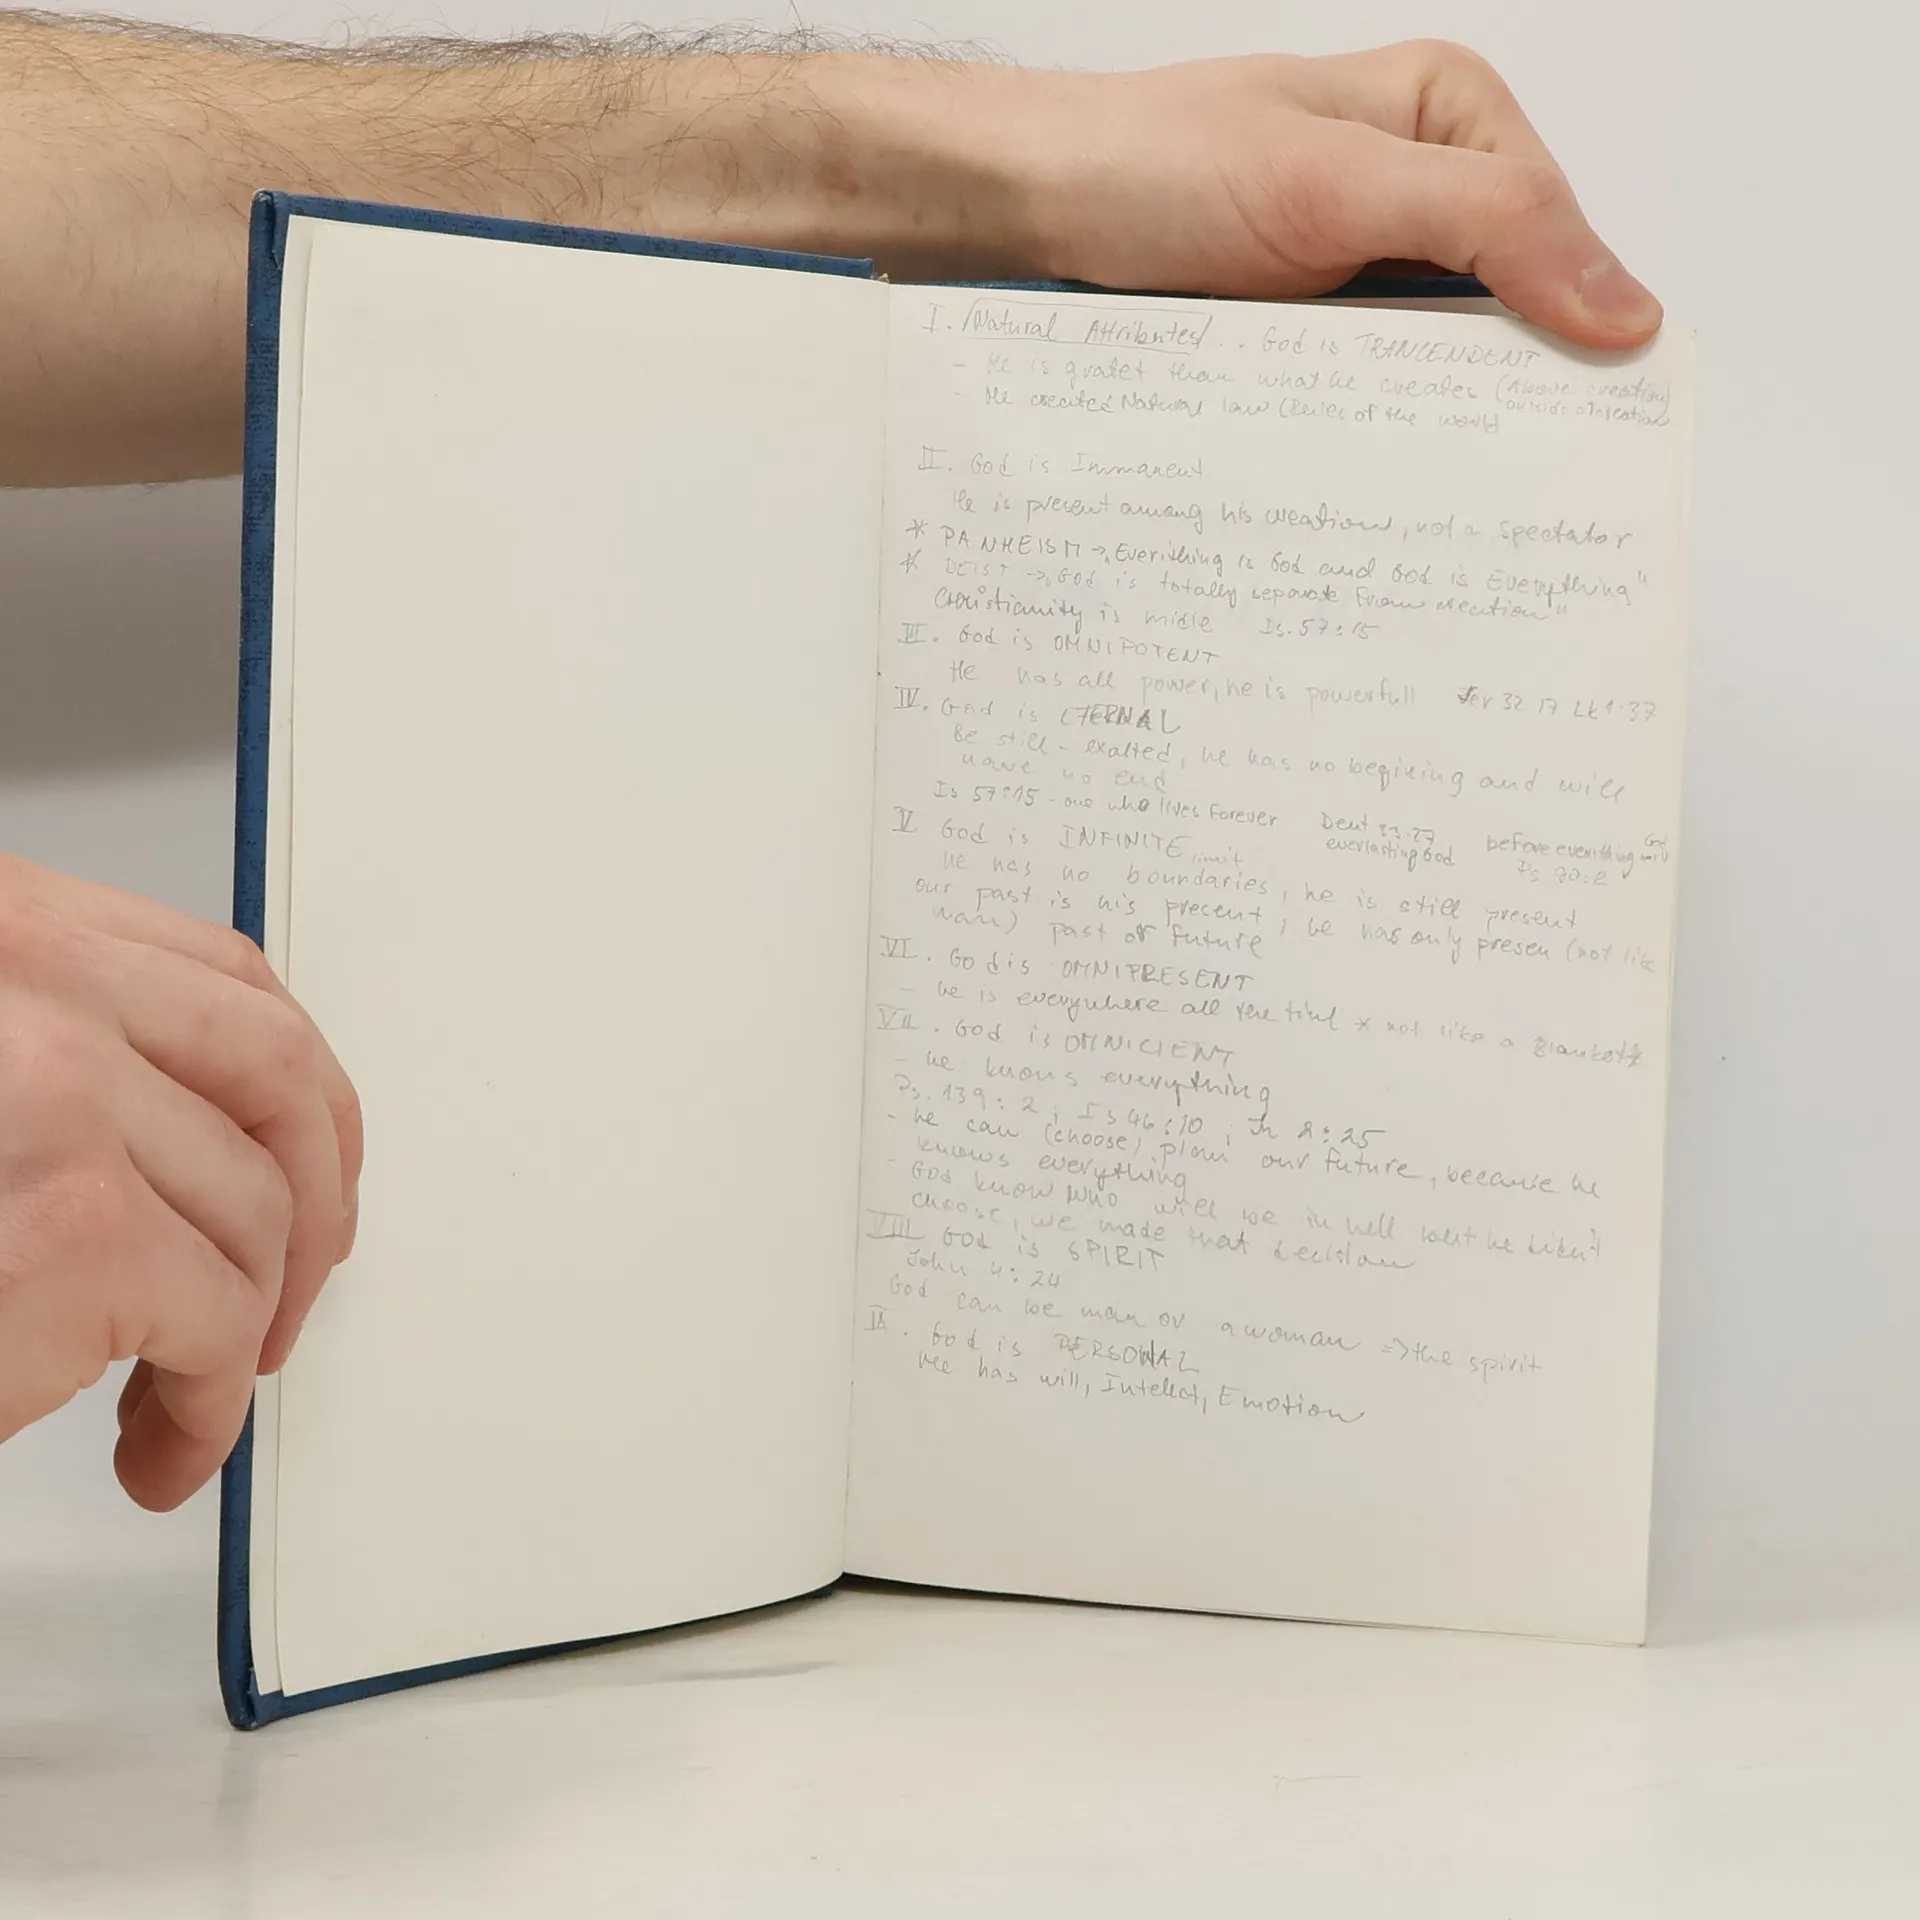 I. Natural Attributes .. God is TRANCENDENT
- He is grater than what he creates (Above creation)
outside of creation
- He created Natural law (Rules of the world
II. God is Immanent
He is present among his creation, not a spectator
* PANHEISM -> "Everithing is God and God is Everything"
* DEIST -> "God is totally separate from creation"
Christianity is midle Is. 57:15
III. God is OMNIPOTENT
He has all power, he is powerfull Jer 32 17 Lk 1:37
IV. God is ETERNAL
Be still - exalted, he has no begining and will
have no end
Is 57:15 - one who lives Forever Deut 33:27 before everithing God
everlasting God Ps 90:2
V God is INFINITE limit
he has no boundaries, he is still present
our past is his present, he has only presen (not like
man) past or future
VI. God is OMNIPRESENT
- he is everywhere all the time * not like a Blanket*
VII. God is OMNICIENT
- he knows everything
Ps. 139:2; Is 46:10; Jn 2:25
- he can (choose) plan our future, because he
knows everything
- God know WHO will be in hell but he didn't
choose, we made that decision
VIII God is SPIRIT
John 4:24
God can be man or a woman => the spirit
IX. God is PERSONAL
He has will, Intellect, Emotion